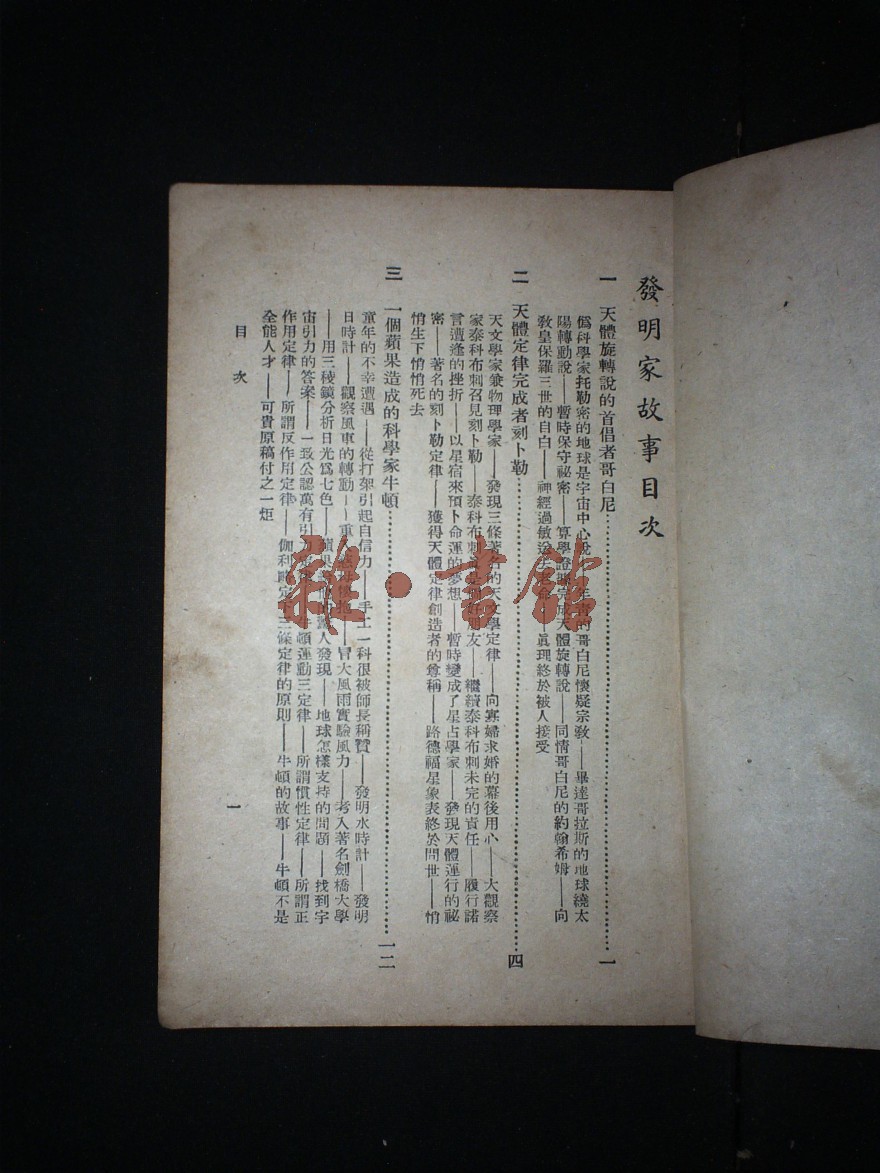 發明家故事目次
一 天體旋轉說的首倡者哥白尼 一
僞科學家托勒密的地球是宇宙中心說 年靑的哥白尼懷疑宗敎——畢達哥拉斯的地球繞太
陽轉動說——暫時保守祕密——算學證據完成天體旋轉說——同情哥白尼的約翰希姆——向
敎皇保羅三世的自白——神經過敏 眞理終於被人接受
二 天體定律完成者刻卜勒 四
天文學家兼物理學家——發現三條著名的天文學定律——向寡婦求婚的幕後用心——大觀察
家泰科布刺召見刻卜勒——泰科布刺 友——繼續泰科布刺未完的責任——履行諾
言遭逢的挫折——以星宿來預卜命運的夢想——暫時變成了星占學家——發現天體運行的祕
密——著名的刻卜勒定律——獲得天體定律創造者的尊稱——路德福星象表終於問世——悄
悄生下悄悄死去
三 一個蘋果造成的科學家牛頓 一二
童年的不幸遭遇——從打架引起自信力——手工一科很被師長稱贊——發明水時計——發明
日時計——觀察風車的轉動——重 冒大風雨實驗風力——考入著名劍橋大學
——用三稜鏡分析日光爲七色——蘋果 人發現——地球怎樣支持的問題——找到宇
宙引力的答案——一致公認萬有引力 牛頓運動三定律——所謂慣性定律——所謂正
作用定律——所謂反作用定律——伽利 定下三條定律的原則——牛頓的故事——牛頓不是
全能人才——可貴原稿付之一炬
目次
一
雜·書館